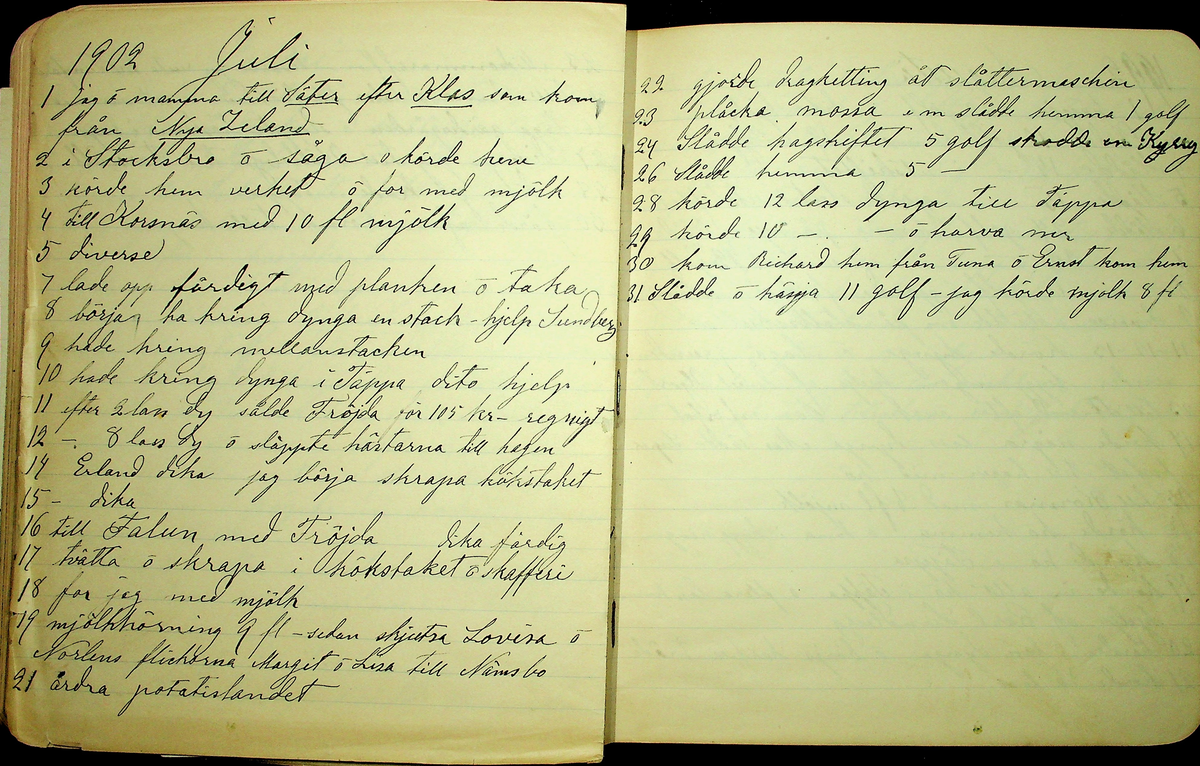 1902 Juli
1 jag ō mamma till Säter efter Klas som kom
från Nya Zeland
2 i Stocksbro ō såga o körde hem
3 körde hem verket ō for med mjölk
4 till Korsnäs med 10 fl mjölk
5 diverse
7 lade opp färdigt med planken ō taka
8 börja ha kring dynga en stack - hjelp Sundberg
9 hade kring mellanstacken
10 hade kring dynga i Täppa dito hjelp
11 efter 2 lass dy sålde Fröjda för 105 kr - regnigt
12 - . 8 lass dy ō släppte hästarna till hagen
14 Erland dika jag börja skrapa kökstaket
15 - dika
16 till Falun med Fröjda dika färdig
17 tvätta ō skrapa i kökstaket ō skafferi
18 for jag med mjölk
19 mjölkkörning 9 fl - sedan skjutsa Lovisa ō
Norlens flickorna Margit ō Lisa till Nämsbo
21 årdra potatislandet
22 gjorde dragketting åt slåttermaschin
23 plåcka mossa e m slådde hemma 1 golf
24 Slådde hagshiftet 5 golf skodde en
26 Slådde hemma 5 —
28 körde 12 lass dynga till Täppa
29 körde 10 - . - ō harva ner
30 kom Richard hem från Tuna ō Ernst kom hem
31 Slådde ō hässja 11 golf - jag körde mjölk 8 fl